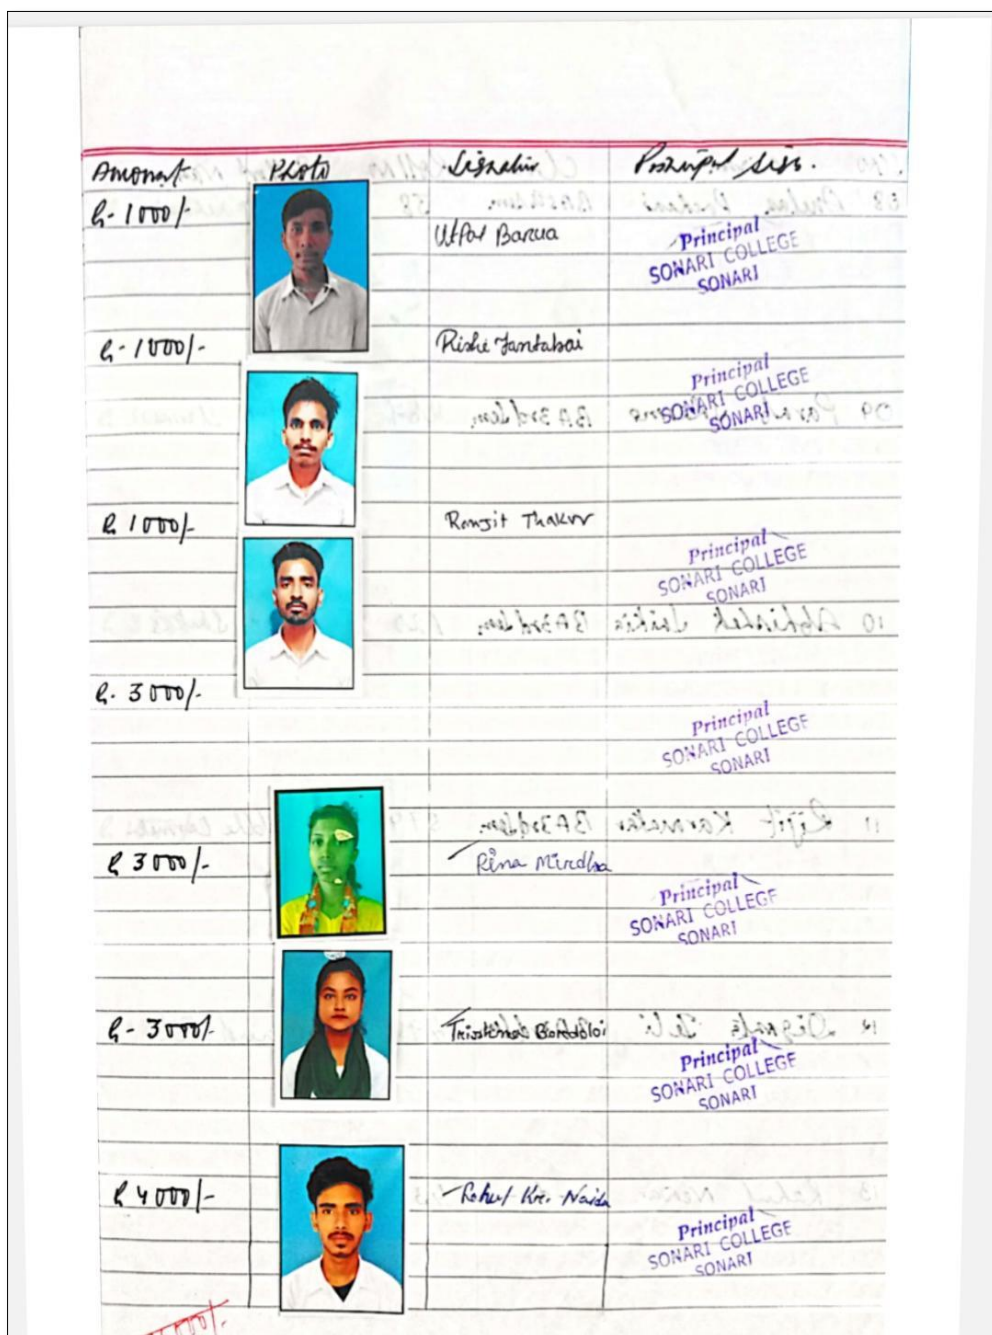 Amount Photo Signature Principal Sign.
Rs- 1000/- Utpal Barua Principal
SONARI COLLEGE
SONARI
Rs- 1000/- Rishi Tantabai Principal
SONARI COLLEGE
SONARI
Rs 1000/- Ranjit Thakur Principal
SONARI COLLEGE
SONARI
Rs. 3000/- Principal
SONARI COLLEGE
SONARI
Rs 3000/- Rina Mirdha Principal
SONARI COLLEGE
SONARI
Rs- 3000/- Bordoloi Principal
SONARI COLLEGE
SONARI
Rs 4000/- Rahul Kr. Naida Principal
SONARI COLLEGE
SONARI